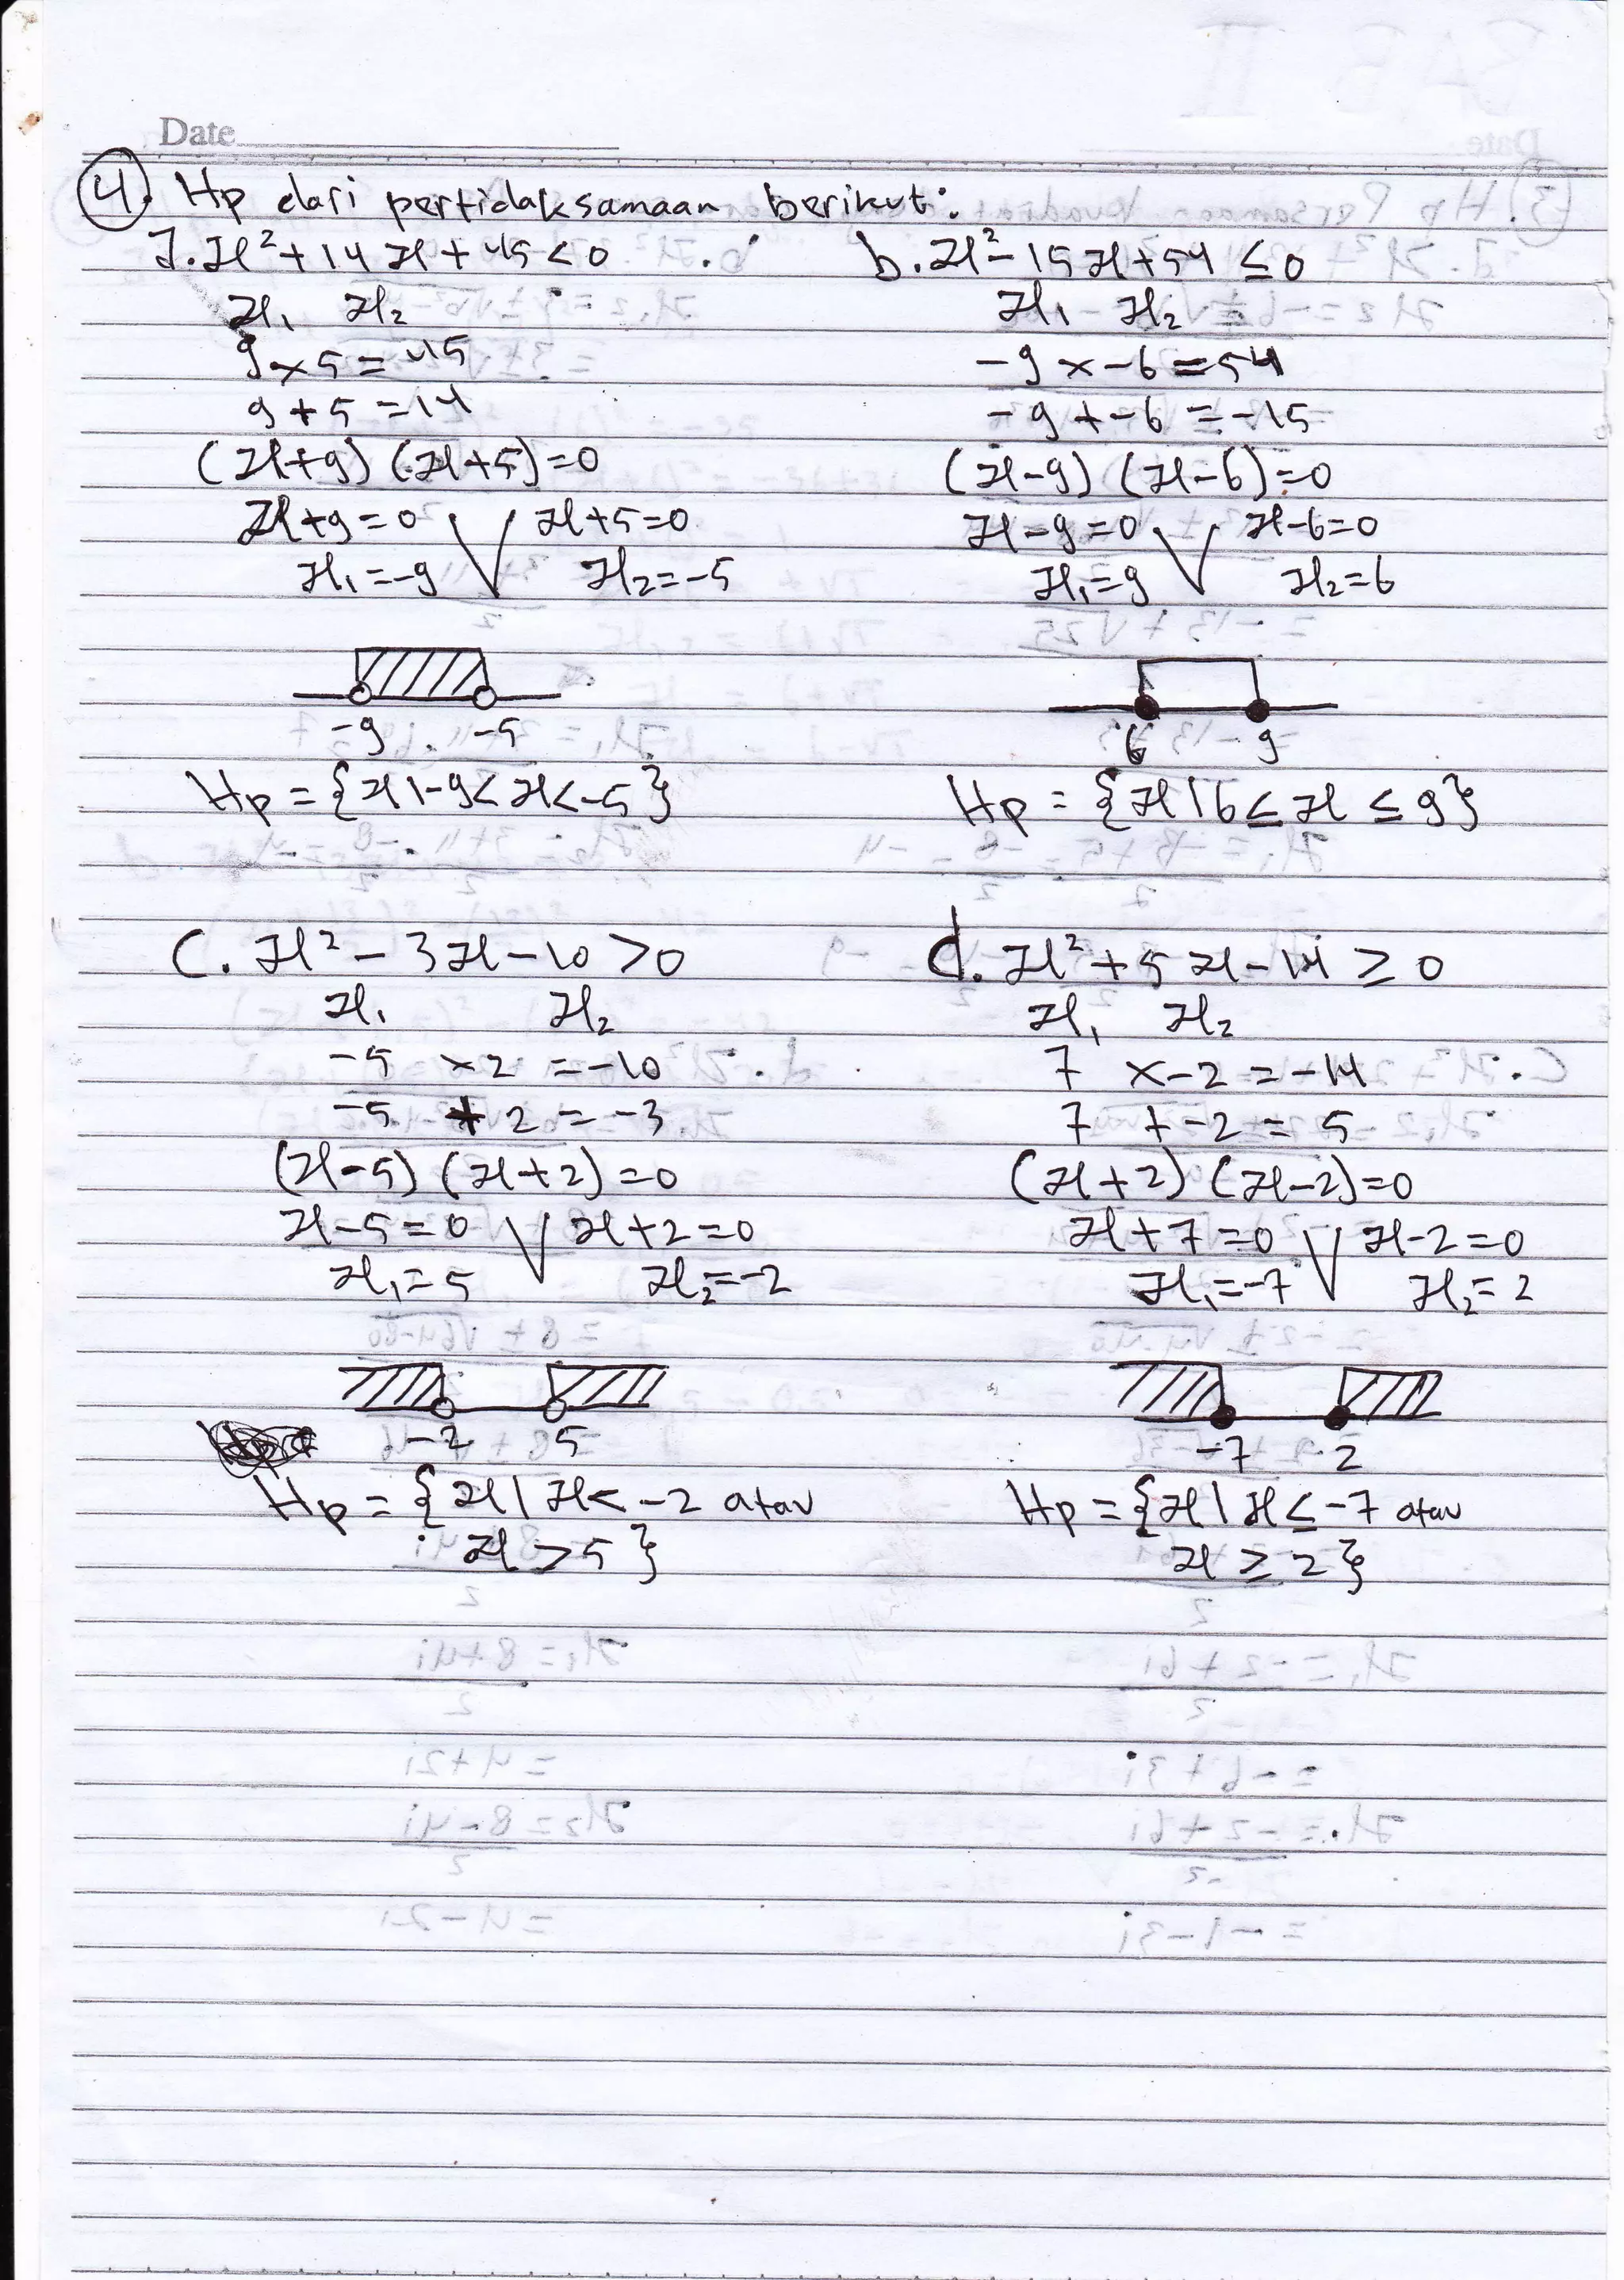 Date
4. Hp dari pertidaksamaan berikut:
a. x² + 14x + 45 < 0
x₁ x₂
9 × 5 = 45
9 + 5 = 14
(x+9) (x+5) = 0
x+9 = 0 V x+5 = 0
x₁ = -9 x₂ = -5
-9 -5
Hp = {x | -9 < x < -5}
b. x² - 15x + 54 ≤ 0
x₁ - x₂
-9 × -6 = 54
-9 + -6 = -15
(x-9) (x-6) = 0
x-9 = 0 V x-6 = 0
x₁ = 9 x₂ = 6
6 9
Hp = {x | 6 ≤ x ≤ 9}
c. x² - 3x - 10 > 0
x₁ x₂
-5 × 2 = -10
-5 + 2 = -3
(x-5) (x+2) = 0
x-5 = 0 V x+2 = 0
x₁ = 5 x₂ = -2
-2 5
Hp = {x | x < -2 atau
x > 5}
d. x² + 5x - 14 ≥ 0
x₁ x₂
7 × -2 = -14
7 + -2 = 5
(x+2) (x-2) = 0
x+7 = 0 V x-2 = 0
x₁ = -7 x₂ = 2
-7 2
Hp = {x | x ≤ -7 atau
x ≥ 2}